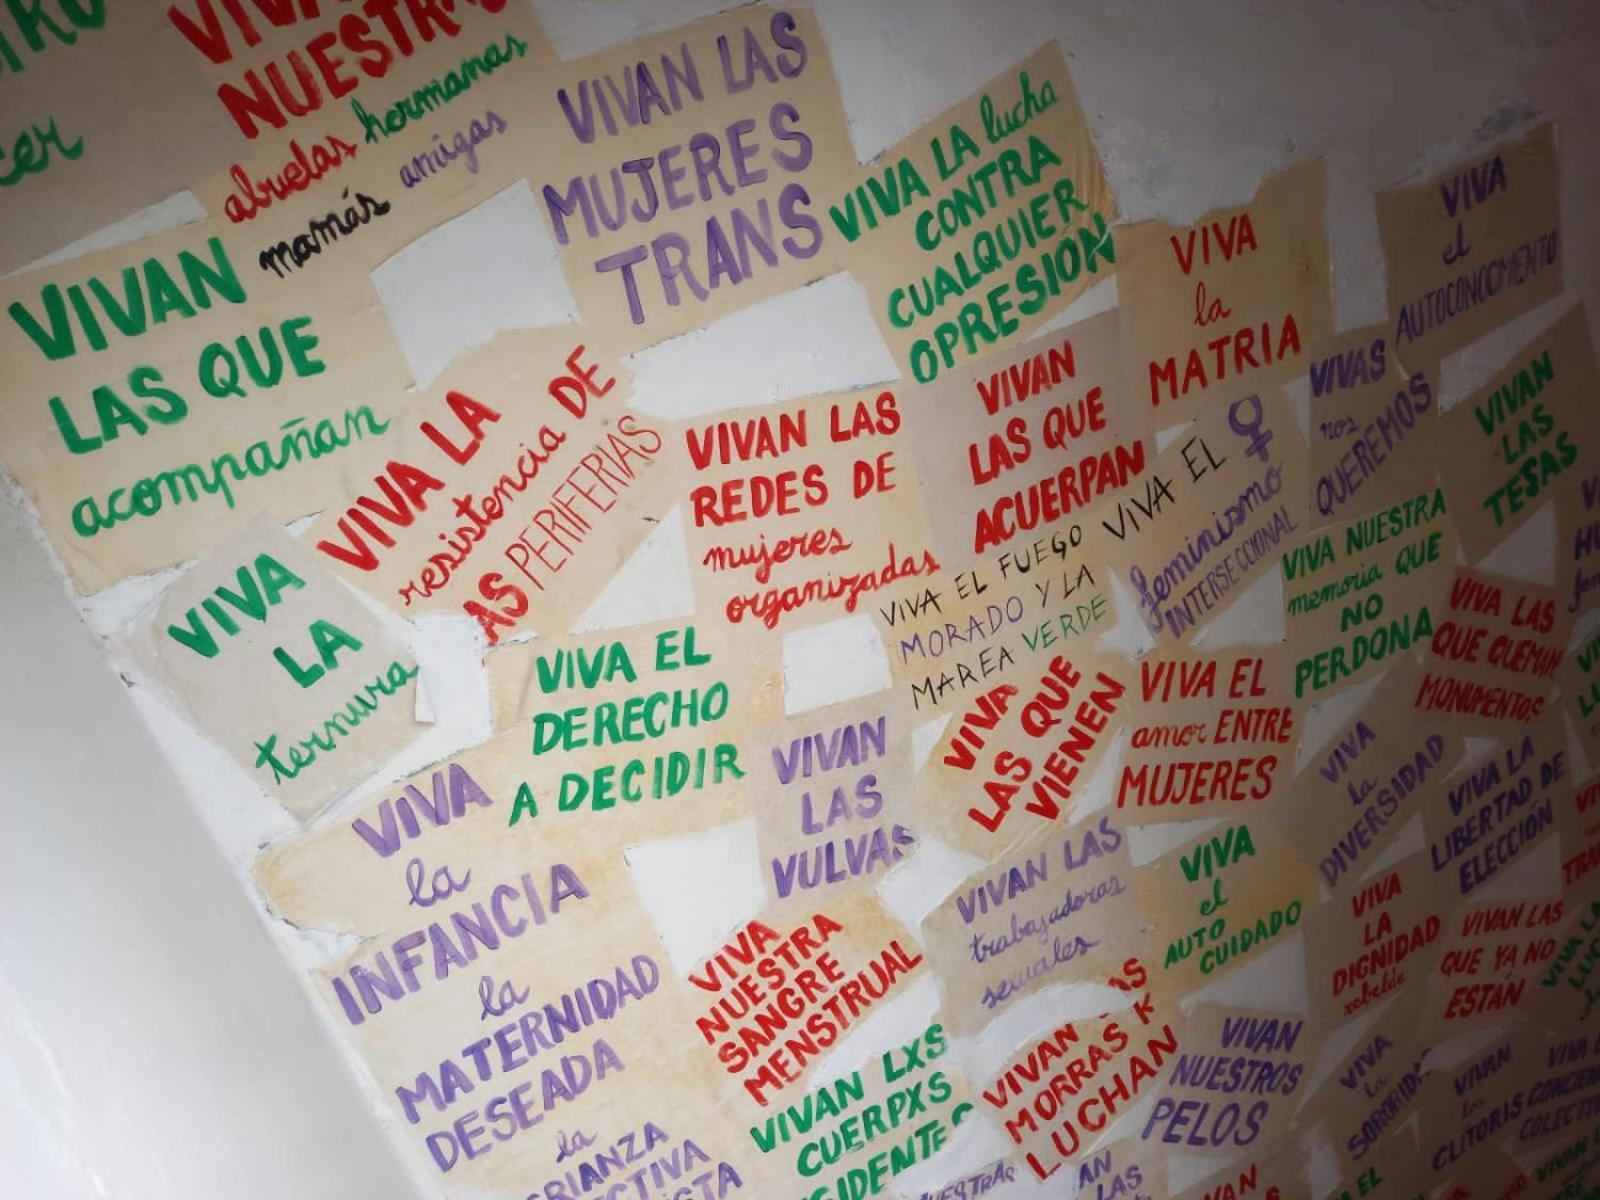 cer
NUESTRAS
abuelas hermanas
mamás amigas
VIVAN LAS
MUJERES
TRANS
VIVA LA lucha
CONTRA
CUALQUIER
OPRESIÓN
VIVA
la
MATRIA
VIVA
el
AUTOCONOCIMIENTO
VIVAN
LAS QUE
acompañan
VIVA LA
resistencia DE
LAS PERIFERIAS
VIVAN LAS
REDES DE
mujeres
organizadas
VIVAN
LAS QUE
ACUERPAN
VIVA EL
feminismo
INTERSECCIONAL
VIVAS
nos
QUEREMOS
VIVAN
LAS
TESAS
VIVA
LA
ternura
VIVA EL
DERECHO
A DECIDIR
VIVA EL FUEGO
MORADO Y LA
MAREA VERDE
VIVA NUESTRA
memoria QUE
NO
PERDONA
VIVA LAS
QUE QUEMAN
MONUMENTOS
VIVA
la
INFANCIA
la
MATERNIDAD
DESEADA
la
CRIANZA
VIVAN
LAS
VULVAS
VIVA
LAS QUE
VIENEN
VIVA EL
amor ENTRE
MUJERES
VIVA
la
DIVERSIDAD
VIVA LA
LIBERTAD DE
ELECCIÓN
VIVA
NUESTRA
SANGRE
MENSTRUAL
VIVAN LAS
trabajadoras
sexuales
VIVA
el
AUTO
CUIDADO
VIVA
LA
DIGNIDAD
rebelde
VIVAN LAS
QUE YA NO
ESTÁN
VIVAN LXS
CUERPXS
VIVAN LAS
MORRAS K
LUCHAN
VIVAN
NUESTROS
PELOS
VIVA
la
SORORIDAD
VIVAN
los
CLITORIS